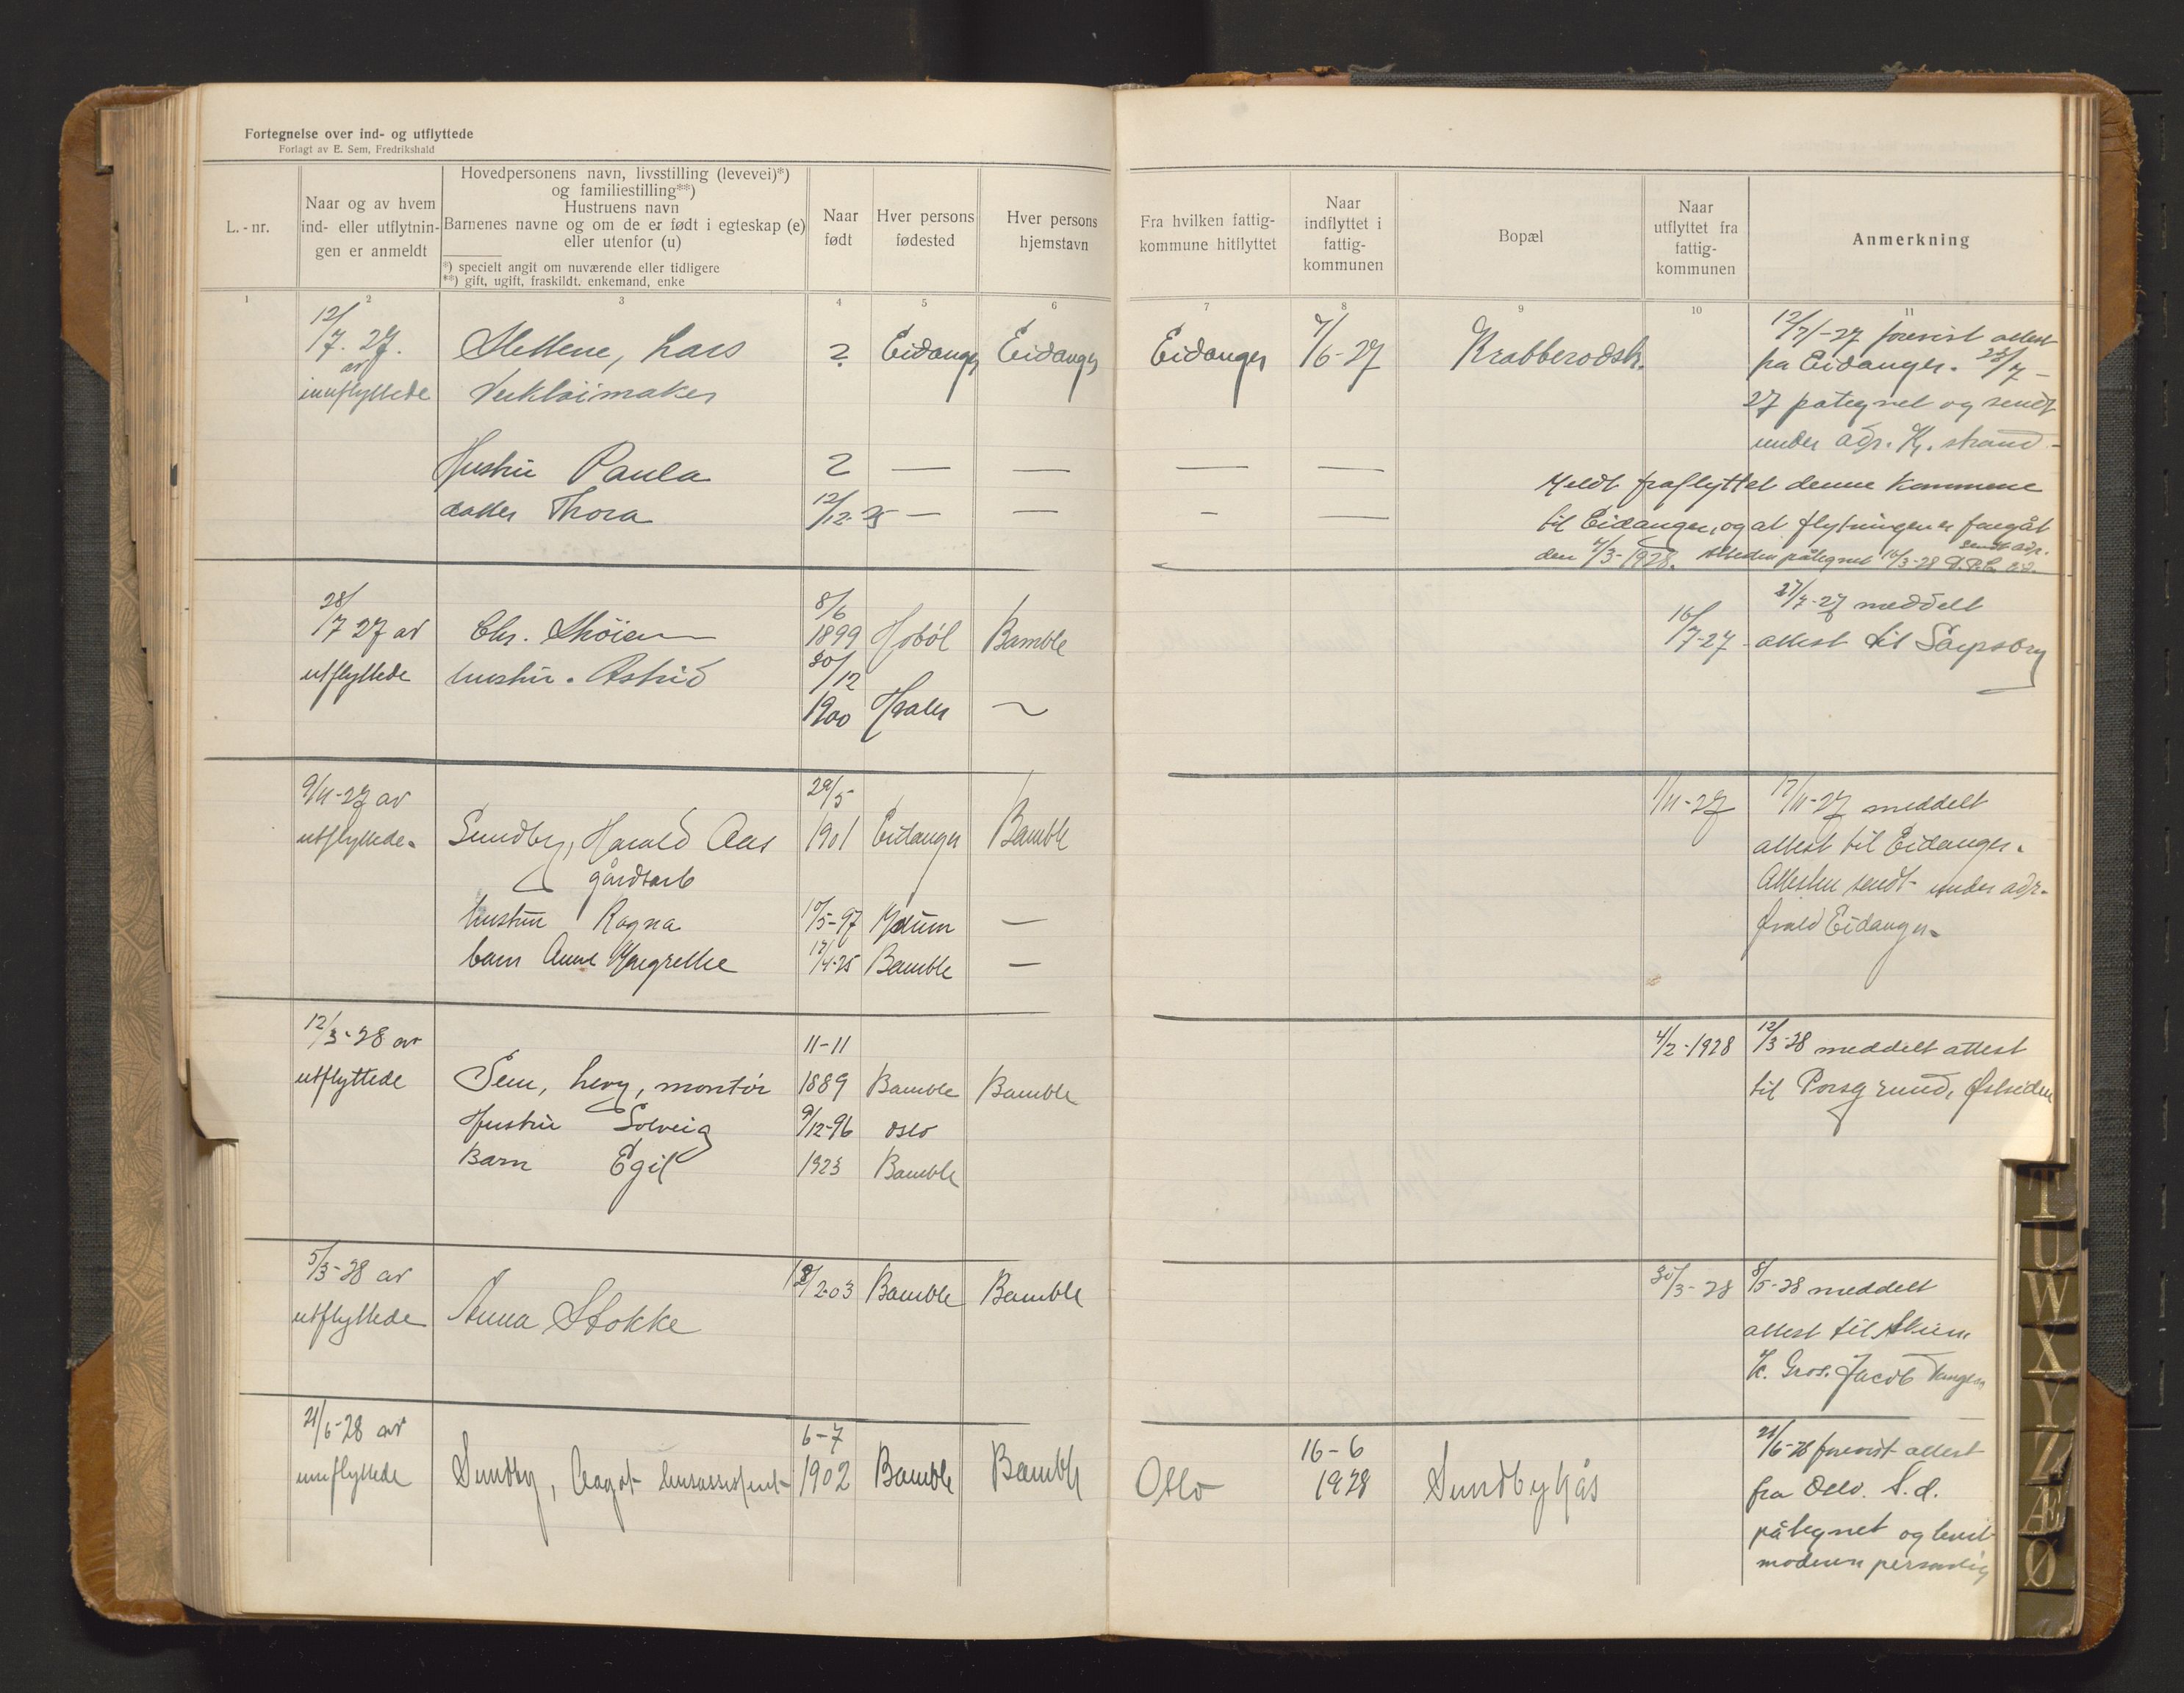 Fortegnelse over ind- og utflyttede
Forlagt av E. Sem, Fredrikshald
L.-nr.
Naar og av hvem
ind- eller utflytnin-
gen er anmeldt
Hovedpersonens navn, livsstilling (levevei)*)
og familiestilling**)
Hustruens navn
Barnenes navne og om de er født i egteskap (e)
eller utenfor (u)
*) specielt angit om nuværende eller tidligere
**) gift, ugift, fraskildt. enkemand, enke
Naar
født
Hver persons
fødested
Hver persons
hjemstavn
Fra hvilken fattig-
kommune hitflyttet
Naar
indflyttet i
fattig-
kommunen
Bopæl
Naar
utflyttet fra
fattig-
kommunen
Anmerkning
1 2 3 4 5 6 7 8 9 10 11
12/7. 27. av
innflyttede
Slettene, Lars
Verktøimaker
? Eidanger Eidanger Eidanger 7/6-27 Krabberødstr.
12/7-27 forevist attest
fra Eidanger. 25/7-
27 påtegnet og sendt
under adr. Kr. strand
Hustru Paula ? — — — —
datter Thora 12/12-25 — — — —
Meldt fraflyttet denne kommune
til Eidanger, og at flytningen er foregåt
den 4/3-1928. Attesten påtegnet 16/3-28 sendt adr.
28/7 27 av
utflyttede
Chr. Skøien 8/6 1899 Hobøl Bamble
hustru. Astrid 30/12 1900 Hvaler ~
16/7-27
27/7-27 meddelt
attest til Sarpsborg
9/11-27 av
utflyttede.
Sundby, Harald Aas
gårdsarb
29/5- 1901 Eidanger Bamble
hustru Ragna 10/5-97 —
barn Anne Margrethe 12/4-25 Bamble —
1/11-27
17/11-27 meddelt
attest til Eidanger.
Attesten sendt under adr.
Eidanger.
12/3-28 av
utflyttede
Sem, Levy, montør 11-11 1889 Bamble Bamble
Hustru Solveig 9/12-96 Oslo
Barn Egil 1923 Bamble
4/2-1928
12/3-28 meddelt attest
til Porsgrund, Østsiden
5/3-28 av
utflyttede
Anna Stokke
/2-03 Bamble Bamble
30/3-28
8/5-28 meddelt
attest til Skien
Gros. Jacob
21/6-28 av
innflyttede
Sundby, Aagot husassistent
6-7
1902 Bamble Bamble
Oslo
16-6
1928
Sundbykås
21/6-28 forevist attest
fra Oslo. S.d.
påtegnet og levert
moderen personlig
T
U
W
X
Y
Z
Æ
Ø